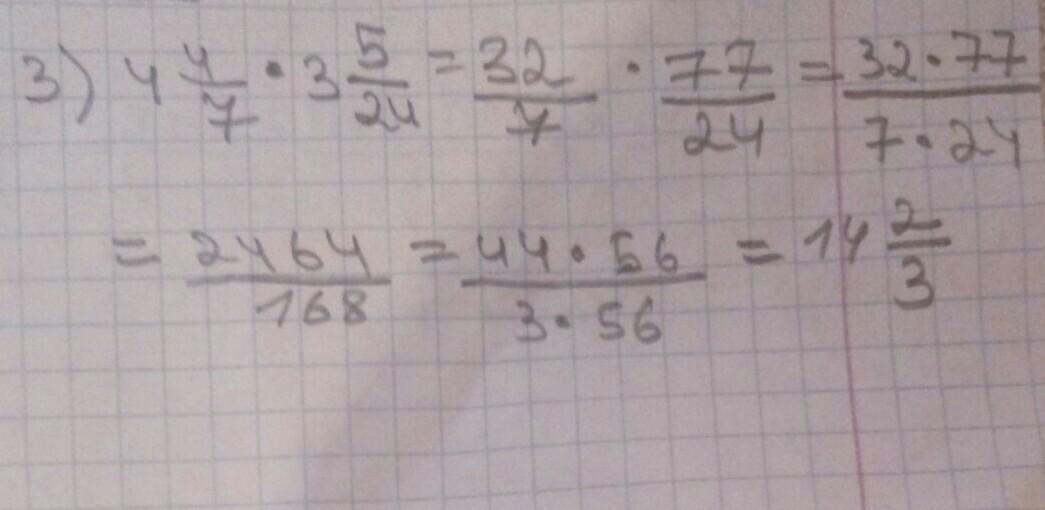 3) 4 4/7 · 3 5/24 = 32/7 · 77/24 = 32·77/7·24
= 2464/168 = 44·56/3·56 = 14 2/3